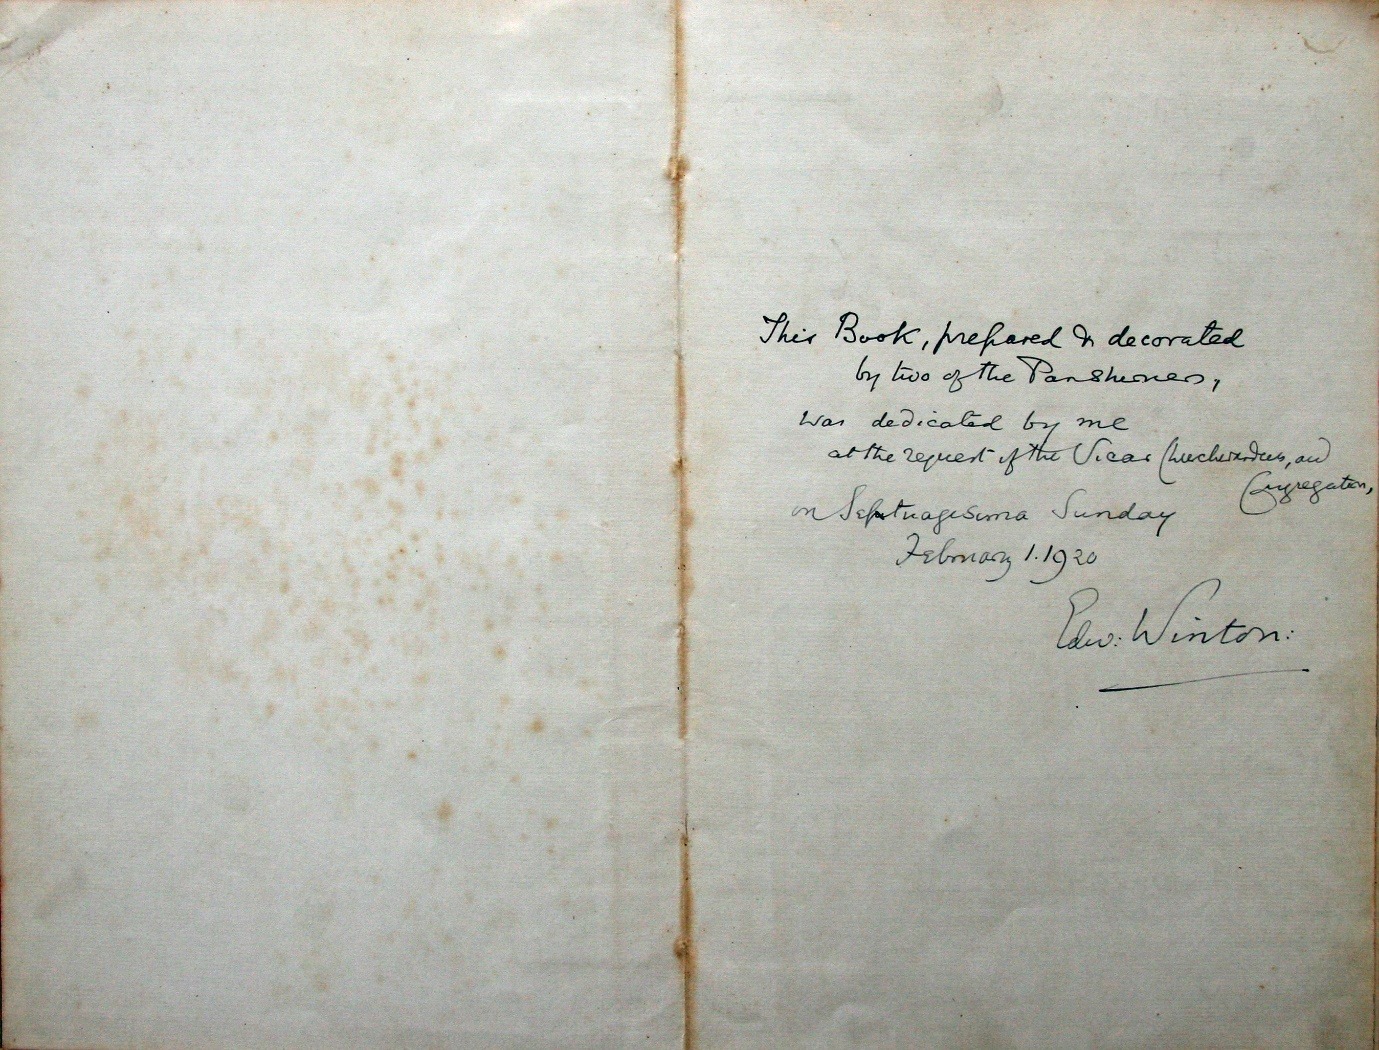 This Book, prepared & decorated
by two of the Parishioners,
was dedicated by me
at the request of the Vicar Churchwardens, and
Congregation,
on Septuagesima Sunday
February 1. 1920
Edw: Winton: